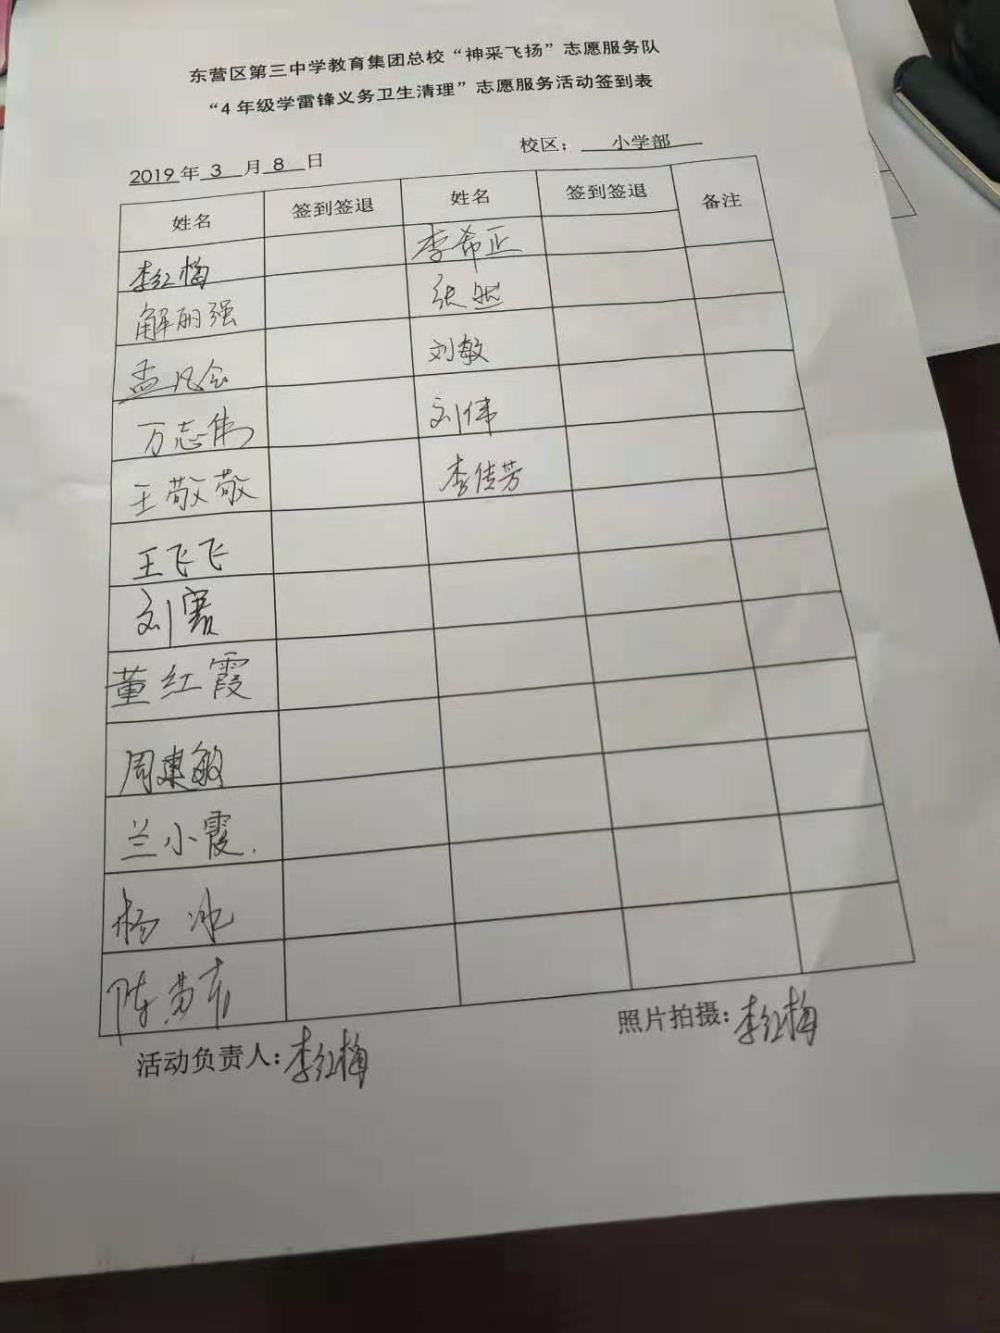 东营区第三中学教育集团总校“神采飞扬”志愿服务队
“4年级学雷锋义务卫生清理”志愿服务活动签到表
2019年 3 月 8 日 校区： 小学部
姓名 签到签退 姓名 签到签退 备注
李红梅 李希正
解丽强 张燃
孟凡会 刘敏
万志伟 刘伟
王敬敬 李传芳
王飞飞
刘
董红霞
周建敏
兰小霞.
杨冰
陈
活动负责人：李红梅 照片拍摄：李红梅